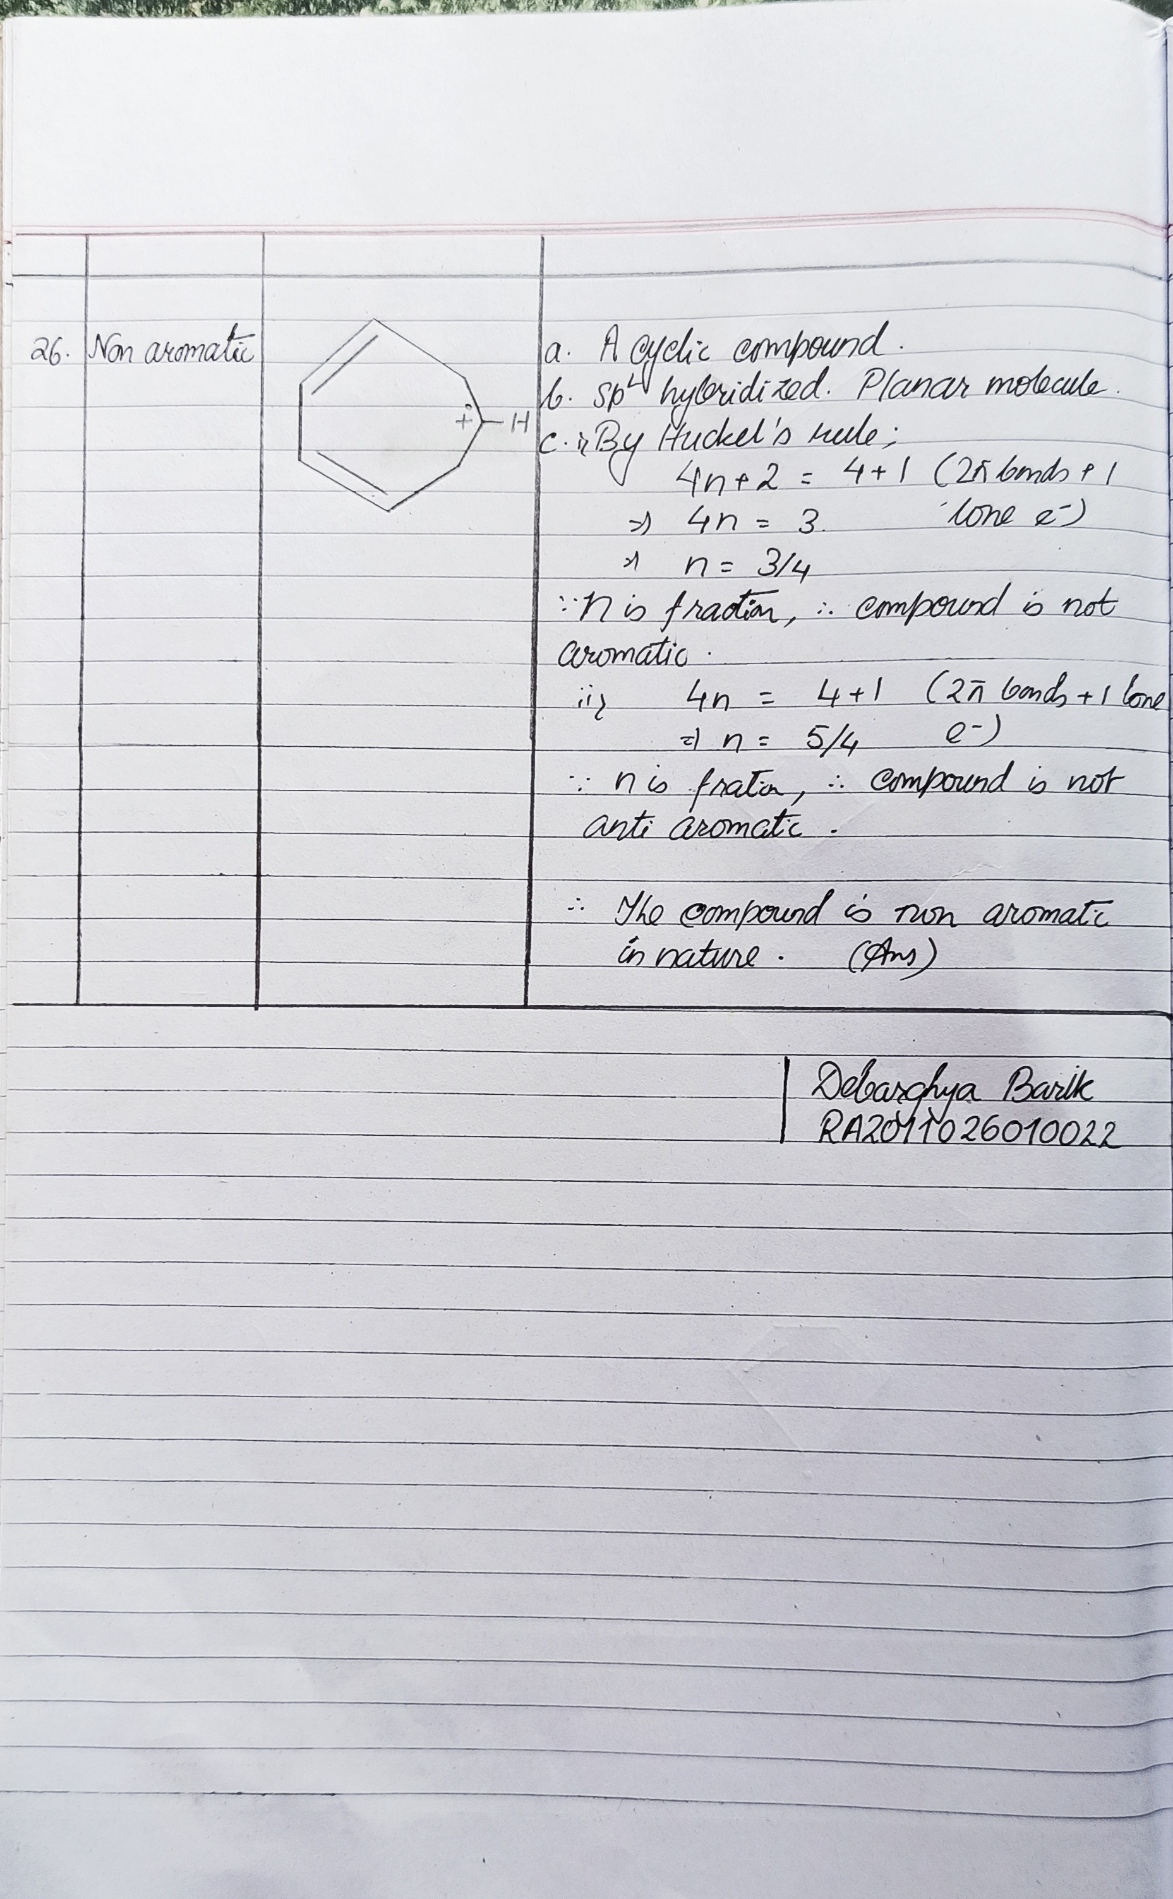 26. Non aromatic
+ H
a. A cyclic compound.
b. sp² hybridized. Planar molecule.
c. i, By Huckel's rule;
4n+2 = 4+1 (2π bonds + 1
⇒ 4n = 3. lone e⁻)
⇒ n = 3/4
∵ n is fraction, ∴ compound is not
aromatic.
ii, 4n = 4+1 (2π bonds + 1 lone
⇒ n = 5/4 e⁻)
∵ n is fratin, ∴ compound is not
anti aromatic.
∴ The compound is non aromatic
in nature. (Ans)
Debarghya Barik
RA2011026010022